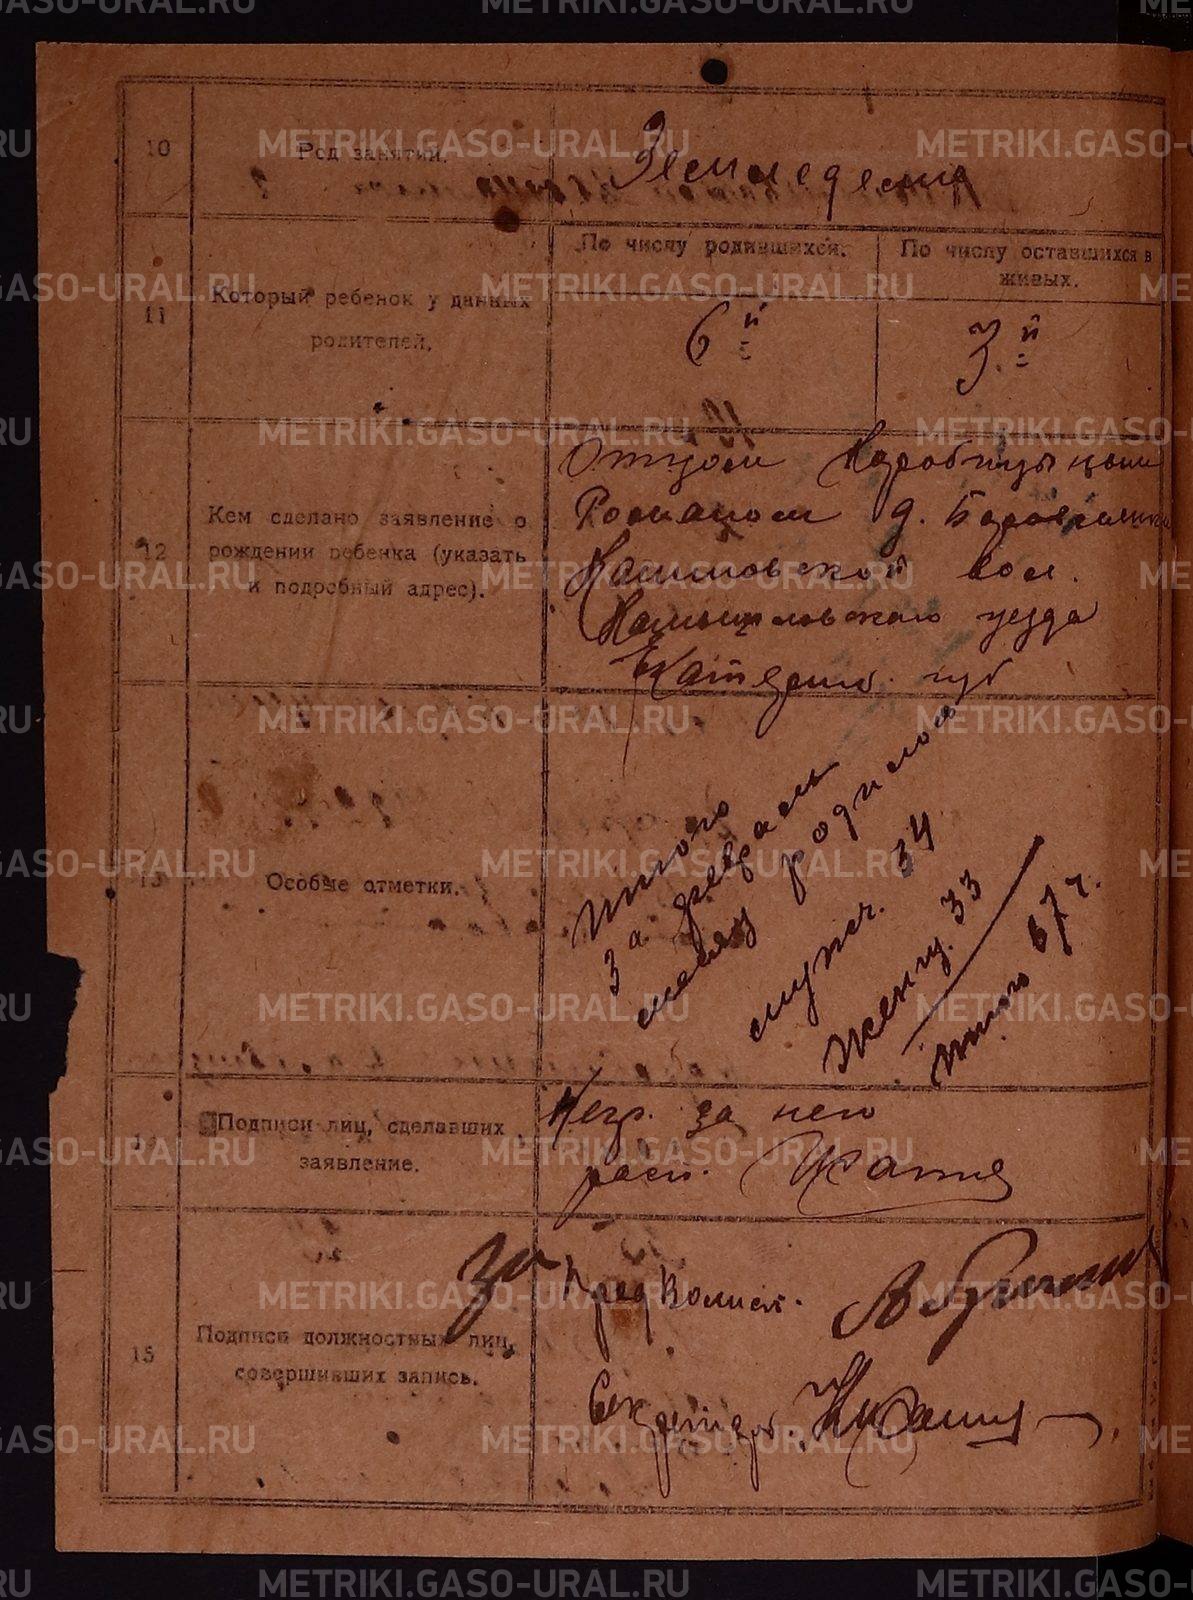 10
Род занятий.
Земледелие
11
Который ребенок у данных
родителей.
По числу родившихся.
По числу оставшихся в
живых.
6й
3.й
12
Кем сделано заявление о
рождении ребенка (указать
и подробный адрес).
Отцом Коробицыным
Романом д.
вол.
Камышловского уезда
Екатерин. губ
13
Особые отметки.
Итого
за февраль
месяц родилось
мужч. 34
женщ. 33
Итого 67 ч.
14
Подписи лиц, сделавших
заявление.
Негр. за него
расп.
15
Подписи должностных лиц,
совершивших запись.
За Пред Волисп.
Секретарь
METRIKI.GASO-URAL.RU